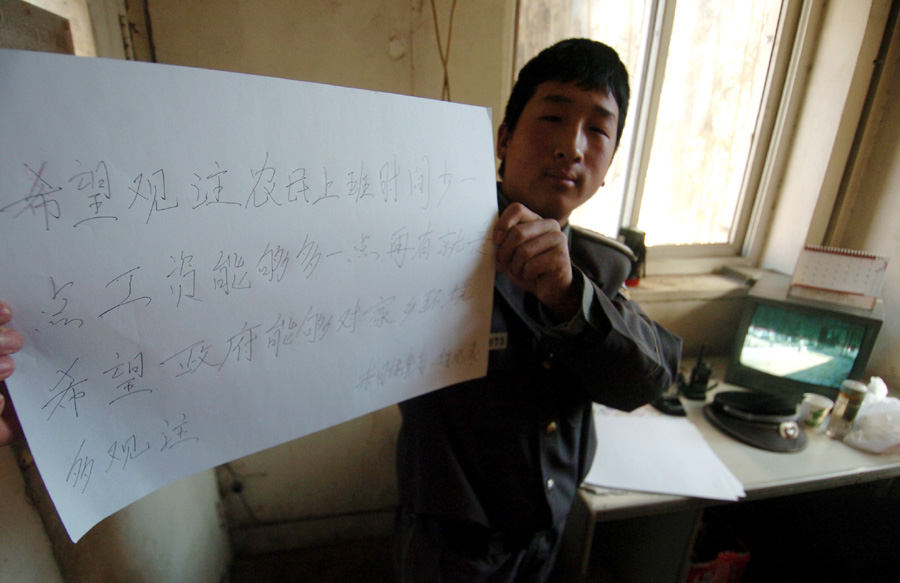 希望观注农民上班时间少一
点工资能够多一点再有就
希望政府能够对家乡
多观注